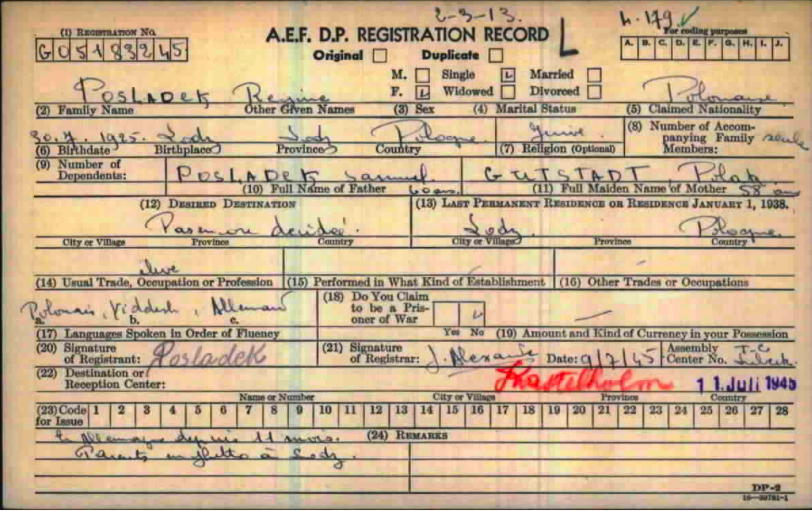 2-3-13. h. 179 ✓
(1) REGISTRATION NO. A.E.F. D.P. REGISTRATION RECORD L For coding purposes
G05183245 Original Duplicate A. B. C. D. E. F. G. H. I. J.
M. Single Married
POSLADEK Regine F. Widowed Divorced Polonaise
(2) Family Name Other Given Names (3) Sex (4) Marital Status (5) Claimed Nationality
30.7.1925. Lodz Lodz Pologne Juive (8) Number of Accompanying Family Members: seule
(6) Birthdate Birthplace Province Country (7) Religion (Optional)
(9) Number of Dependents: POSLADEK Samuel GUTSTADT
(10) Full Name of Father 60 ans (11) Full Maiden Name of Mother 58 ans
(12) DESIRED DESTINATION (13) LAST PERMANENT RESIDENCE OR RESIDENCE JANUARY 1, 1938.
Pas encore décidé. Lodz Pologne
City or Village Province Country City or Village Province Country
élève
(14) Usual Trade, Occupation or Profession (15) Performed in What Kind of Establishment (16) Other Trades or Occupations
Polonais, Yiddish, Allemand (18) Do You Claim to be a Prisoner of War
a. b. c. Yes No
(17) Languages Spoken in Order of Fluency (19) Amount and Kind of Currency in your Possession
(20) Signature of Registrant: Posladek (21) Signature of Registrar: J. Date: 9/7/45 Assembly Center No.
(22) Destination or Reception Center: 11. Juli 1945
Name or Number City or Village Province Country
(23) Code for Issue 1 2 3 4 5 6 7 8 9 10 11 12 13 14 15 16 17 18 19 20 21 22 23 24 25 26 27 28
En Allemagne depuis 11 mois. (24) REMARKS
Parents en ghetto à Lodz.
DP-2
16-39781-1